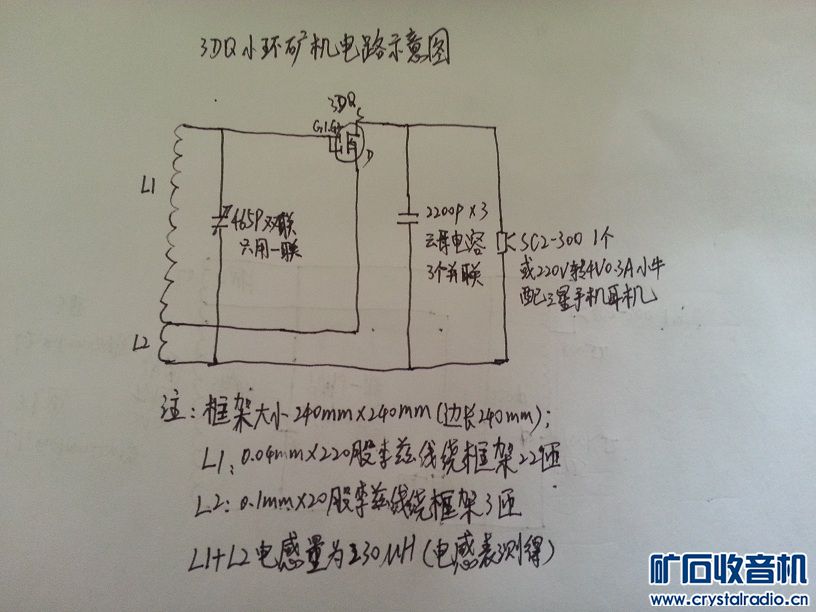 3DQ小环矿机电路示意图
3DQ
S
G1.G2
D
L1
465P双联
只用一联
2200P×3
云母电容
3个并联
SC2-300 1个
或220V转4V0.3A小牛
配三星手机耳机
L2
注：框架大小240mm×240mm(边长240mm)；
L1：0.04mm×220股李兹线绕框架22匝
L2：0.1mm×20股李兹线绕框架3匝
L1+L2电感量为230μH(电感表测得)
矿石收音机
www.crystalradio.cn